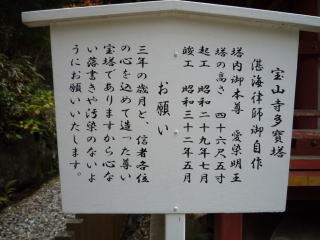 宝山寺多寶塔
湛海律師御自作
塔内御本尊 愛染明王
塔の高さ 四十六尺五寸
起工 昭和二十九年七月
竣工 昭和三十二年五月
お願い
三年の歳月と、信者各位
の心を込めて造った尊い
宝塔でありますから心な
い落書きや汚染のないよ
うにお願いいたします。